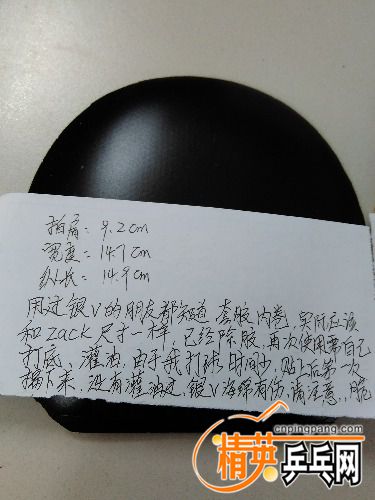 拍肩：9.2cm
宽度：14.7cm
纵长：14.9cm
用过银V的朋友都知道 套胶内卷，实际应该
和zack尺寸一样，已经除胶，再次使用需自己
打底、灌油，由于我打球时间少，贴上后第一次
揭下来，没有灌油过，银V海绵有伤，请注意，脆
cnpingpang.com
精英乒乓网